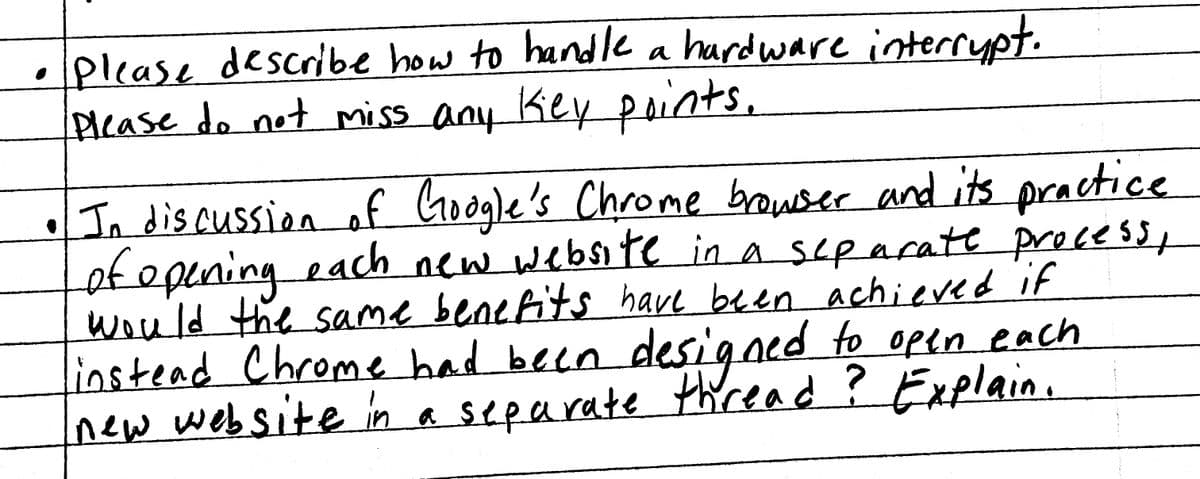 • Please describe how to handle a hardware interrupt.
Please do not miss any key points.
• In discussion of Google's Chrome browser and its practice
of opening each new website in a separate process,
would the same benefits have been achieved if
instead Chrome had been designed to open each
new website in a separate thread? Explain.